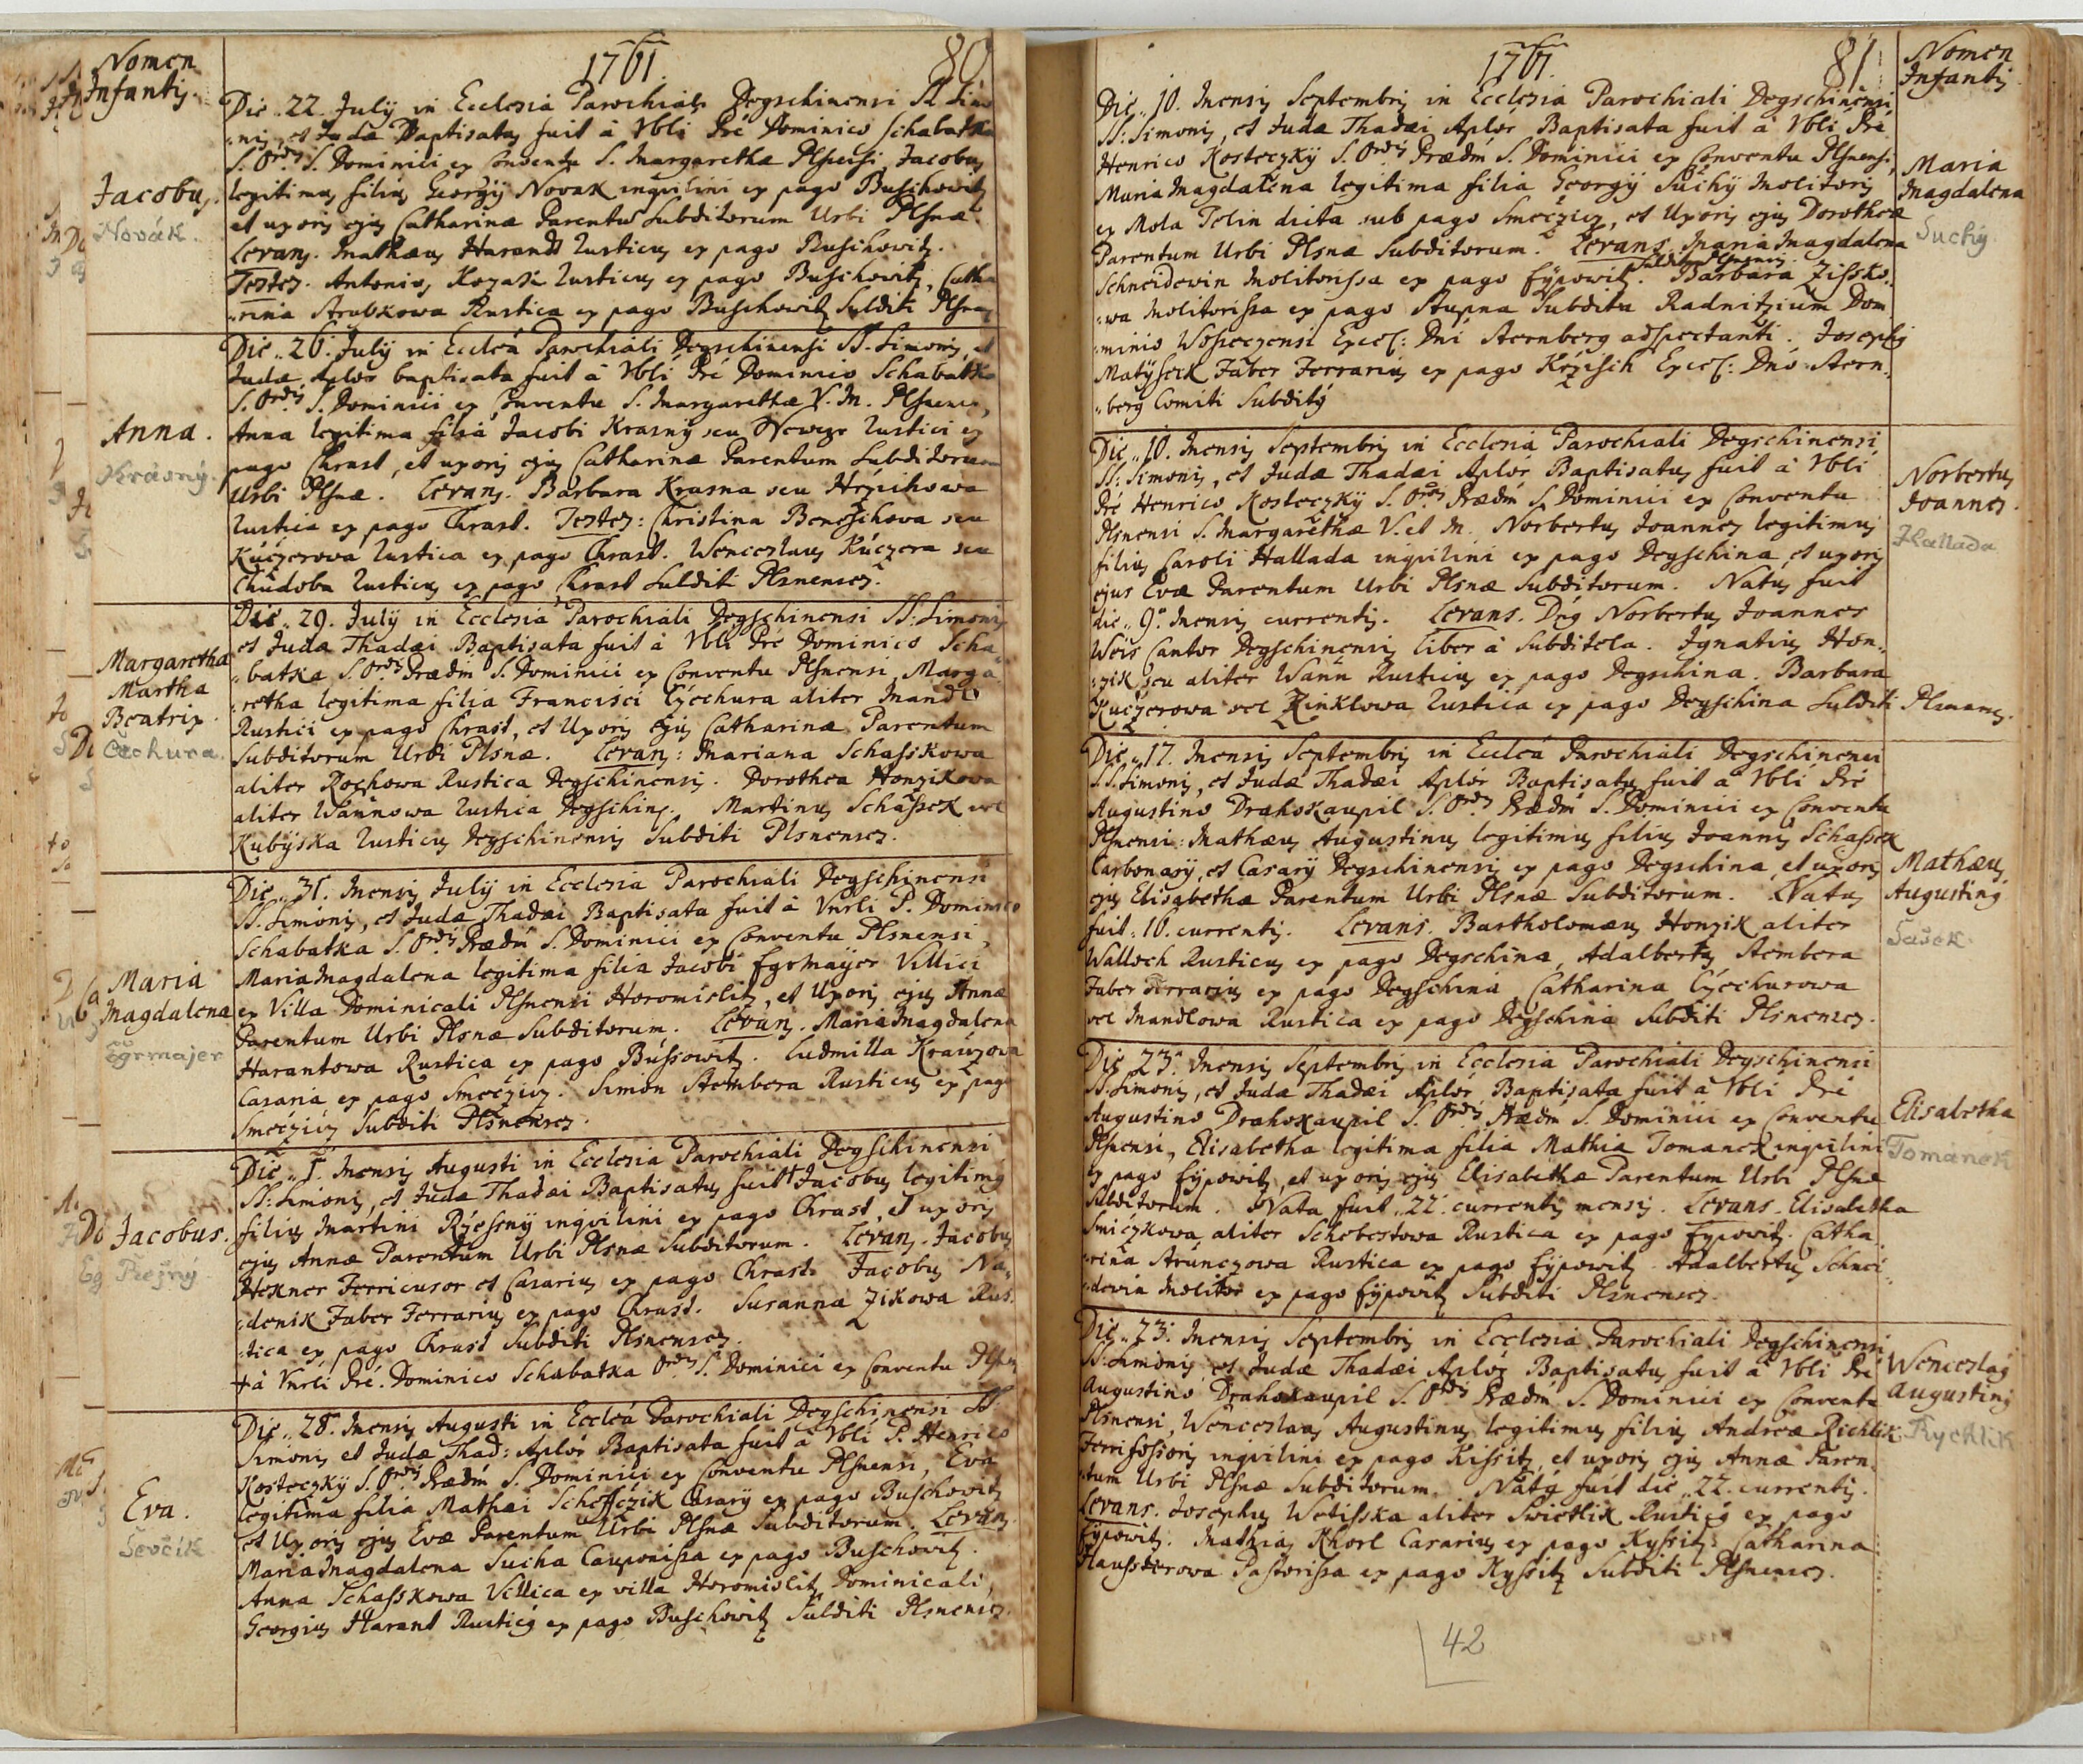 Nomen
Infantis.
1761.
80
Die 22. July in Ecclesia Parochiali Degschinensi SS Simo
nis, et Judæ Baptisatus fuit à Vbli Pre Dominico Schabatka
S. Ordis S. Dominici ex Conventu S. Margarethæ Plsnensi, Jacobus
legitimus filius Georgij Novak inqvilini ex pago Buschowitz
et uxoris ejus Catharinæ Parentum Subditorum Urbi Plsnæ
Levans. Mathæus Harandt Rusticus ex pago Buschowitz.
Testes. Antonius Kozak Rusticus ex pago Buschowitz, Catha
rina Strubkowa Rustica ex pago Buschowitz Subditi Plsnens
Jacobus.
Novák.
Die 26. July in Eccleâ Parochiali Degschinensi SS. Simonis, et
Judæ Aplor baptisata fuit à Vbli Pre Dominico Schabatka
S. Ordis S. Dominici ex Conventu S. Margarethæ V. M. Plsnens,
Anna legitima filia Jacobi Krasny seu Rustici ex
pago Chrast, et uxoris ejus Catharinæ Parentum Subditorum
Urbi Plsnæ. Levans. Barbara Krasna seu Hrzichowa
Rustica ex pago Chrast. Testes: Christina Beneschova seu
Kuczerova Rustica ex pago Chrast. Wenceslaus Kuczera seu
Chudoba Rusticus ex pago Chrast Subditi Plsnenses.
Anna.
Krásný.
Die 29. July in Ecclesia Parochiali Degschinensi SS: Simonis,
et Judæ Thadæi Baptisata fuit à Vbli Pre Dominico Scha
batka S. Ordis Prædm S. Dominici ex Conventu Plsnensi Marga
retha legitima filia Francisci Cžechura aliter Mandl
Rustici ex pago Chrast, et Uxoris ejus Catharinæ Parentum
Subditorum Urbi Plsnæ. Levans: Mariana Schasskowa
aliter Rochowa Rustica Degschinensis. Dorothea Honzikowa
aliter Wannowa Rustica Degschins. Martinus Schassek vel
Kubyska Rusticus Degschinensis Subditi Plsnenses.
Margaretha
Martha
Beatrix.
Čechura.
Die 31. Mensis July in Ecclesia Parochiali Degschinensi
SS. Simonis, et Judæ Thadæi Baptisata fuit à Vnrli P. Dominico
Schabatka S. Ordis Prædm S. Dominici ex Conventu Plsnensi,
Maria Magdalena legitima filia Jacobi Egrmajer Villici
ex Villa Dominicali Plsnensi Horomislitz, et Uxoris ejus Annæ
Parentum Urbi Plsnæ Subditorum. Levans. Maria Magdalena
Harantowa Rustica ex pago Bussowitz. Ludmilla Krauzova
Casaria ex pago Smeczicz. Simon Stembera Rusticus ex pago
Smeczicz Subditi Plsnenses.
Maria
Magdalena
Egrmajer
Die 1. Mensis Augusti in Ecclesia Parochiali Degschinensi
SS. Simonis, et Judæ Thadæi Baptisatus fuit + Jacobus legitimus
filius Martini Ržessny inqvilini ex pago Chrast, et uxoris
ejus Annæ Parentum Urbi Plsnæ Subditorum. Levans. Jacobus
Hexner Ferricusor et Casarius ex pago Chrast. Jacobus Na
denik Faber Ferrarius ex pago Chrast. Susanna Zikowa Rus
tica ex pago Chrast Subditi Plsnenses.
+ à Vnrli Pre. Dominico Schabatka Ordis S. Dominici ex Conventu Plsn
Jacobus.
Die 28. Mensis Augusti in Eccleâ Parochiali Degschinensi SS.
Simonis et Judæ Thad: Aplor Baptisata fuit à Vbli P. Henrico
Kosteczky S. Ordis Prædm S. Dominici ex Conventu Plsnensi, Eva
legitima filia Mathæi Scheffczik Casarij ex pago Buschovitz
et Uxoris ejus Evæ Parentum Urbi Plsnæ Subditorum. Levans
Maria Magdalena Sucha Cauponissa ex pago Buschovitz.
Anna Schasskowa Villica ex villa Horomislitz Dominicali,
Georgius Harant Rusticus ex pago Buschowitz Subditi Plsnenses.
Eva.
Ševčík
1761.
81
Nomen
Infantis
Die 10. Mensis Septembris in Ecclesia Parochiali Degschinensi
SS: Simonis, et Judæ Thadæi Aplor Baptisata fuit à Vbli Pre
Henrico Kosteczky S. Ordis Prædm S. Dominici ex Conventu Plsnensi,
Maria Magdalena legitima filia Georgij Suchy Molitoris
ex Mola Telin dicta sub pago Smeczicz, et Uxoris ejus Dorotheæ
Parentum Urbi Plsnæ Subditorum. Levans Maria Magdalena
Schneidewin Molitorissa ex pago Eypowitz. Subdita Plsnensis. Barbara Zissko
wa Molitorissa ex pago Stupna Subdita Radnitzium Dom
minio Wossecensi Excel: Dni Sternberg adspectanti. Josephus
Matyssek Faber Ferrarius ex pago Kržisch Excel: Dno Stern
berg Comiti Subditus
Maria
Magdalena
Suchý
Die 10. Mensis Septembris in Ecclesia Parochiali Degschinensi
SS: Simonis, et Judæ Thadæi Aplor Baptisatus fuit à Vbli
Pre Henrico Kosteczky S. Ordis Prædm S. Dominici ex Conventu
Plsnensi S. Margarethæ V. et M. Norbertus Joannes legitimus
filius Caroli Hallada inqvilini ex pago Degschina, et uxoris
ejus Evæ Parentum Urbi Plsnæ Subditorum. Natus fuit
die 9. Mensis currentis. Levans. Dnus Norbertus Joannes
Weis Cantor Degschinensis liber à Subditela. Ignatius Hon
zik seu aliter Wann Rusticus ex pago Degschina. Barbara
Kuczerowa vel Zinklowa Rustica ex pago Degschina Subditi Plsnens.
Norbertus
Joannes.
Hallada
Die 17. Mensis Septembris in Eccleâ Parochiali Degschinensi
SS. Simonis, et Judæ Thadæi Aplor Baptisatus fuit à Vbli Pre
Augustino Drahokaupil S. Ordis Prædm S. Dominici ex Conventu
Plsnensi: Mathæus Augustinus legitimus filius Joannis Schassek
Carbonarij, et Casarij Degschinensis ex pago Degschina, et uxoris
ejus Elisabethæ Parentum Urbi Plsnæ Subditorum. Natus
fuit: 16. currentis. Levans. Bartholomæus Honzik aliter
Walloch Rusticus ex pago Degschina, Adalbertus Stembera
Faber Ferrarius ex pago Degschina Catharina Cžechurowa
vel Mandlowa Rustica ex pago Degschina Subditi Plsnenses.
Mathæus
Augustinus
Šašek.
Die 23. Mensis Septembris in Ecclesia Parochiali Degschinensi
SS. Simonis, et Judæ Thadæi Aplor Baptisata fuit à Vbli Pre
Augustino Drahokaupil S. Ordis Prædm S. Dominici ex Conventu
Plsnensi, Elisabetha legitima filia Mathiæ Tomanek inqvilini
ex pago Eypowitz, et uxoris ejus Elisabethæ Parentum Urbi Plsnæ
Subditorum. Nata fuit 22. currentis mensis. Levans. Elisabetha
Smiczkowa aliter Schebestowa Rustica ex pago Eypovitz. Catha
rina Strunczowa Rustica ex pago Eypowitz Adalbertus Schnei
dovin Molitor ex pago Eypovitz Subditi Plsnenses.
Elisabetha
Tomanek
Die 23. Mensis Septembris in Ecclesia Parochiali Degschinensi
SS. Simonis et Judæ Thadæi Aplor Baptisatus fuit à Vbli Pre
Augustino Drahokaupil S. Ordis Prædm S. Dominici ex Conventu
Plsnensi, Wenceslaus Augustinus legitimus filius Andreæ Richlik
Ferrifossoris inqvilini ex pago Kissitz, et uxoris ejus Annæ Paren
tum Urbi Plsnæ Subditorum. Natus fuit die 22. currentis.
Levans. Josephus Wetisska aliter Swietlik Rusticus ex pago
Eypowitz. Mathias Khorl Casarius ex pago Kyssitz: Catharina
Haussderowa Pastorissa ex pago Kyssitz Subditi Plsnenses.
Wenceslaus
Augustinus
Rychlík
42